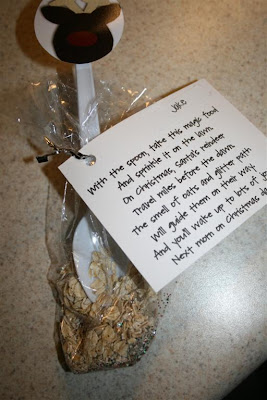 Jake
With the spoon, take this magic food
And sprinkle it on the lawn.
On Christmas, Santa's reindeer
Travel miles before the dawn.
The smell of oats and glitter path
Will guide them on their way
And you'll wake up to lots of
Next morn on Christmas